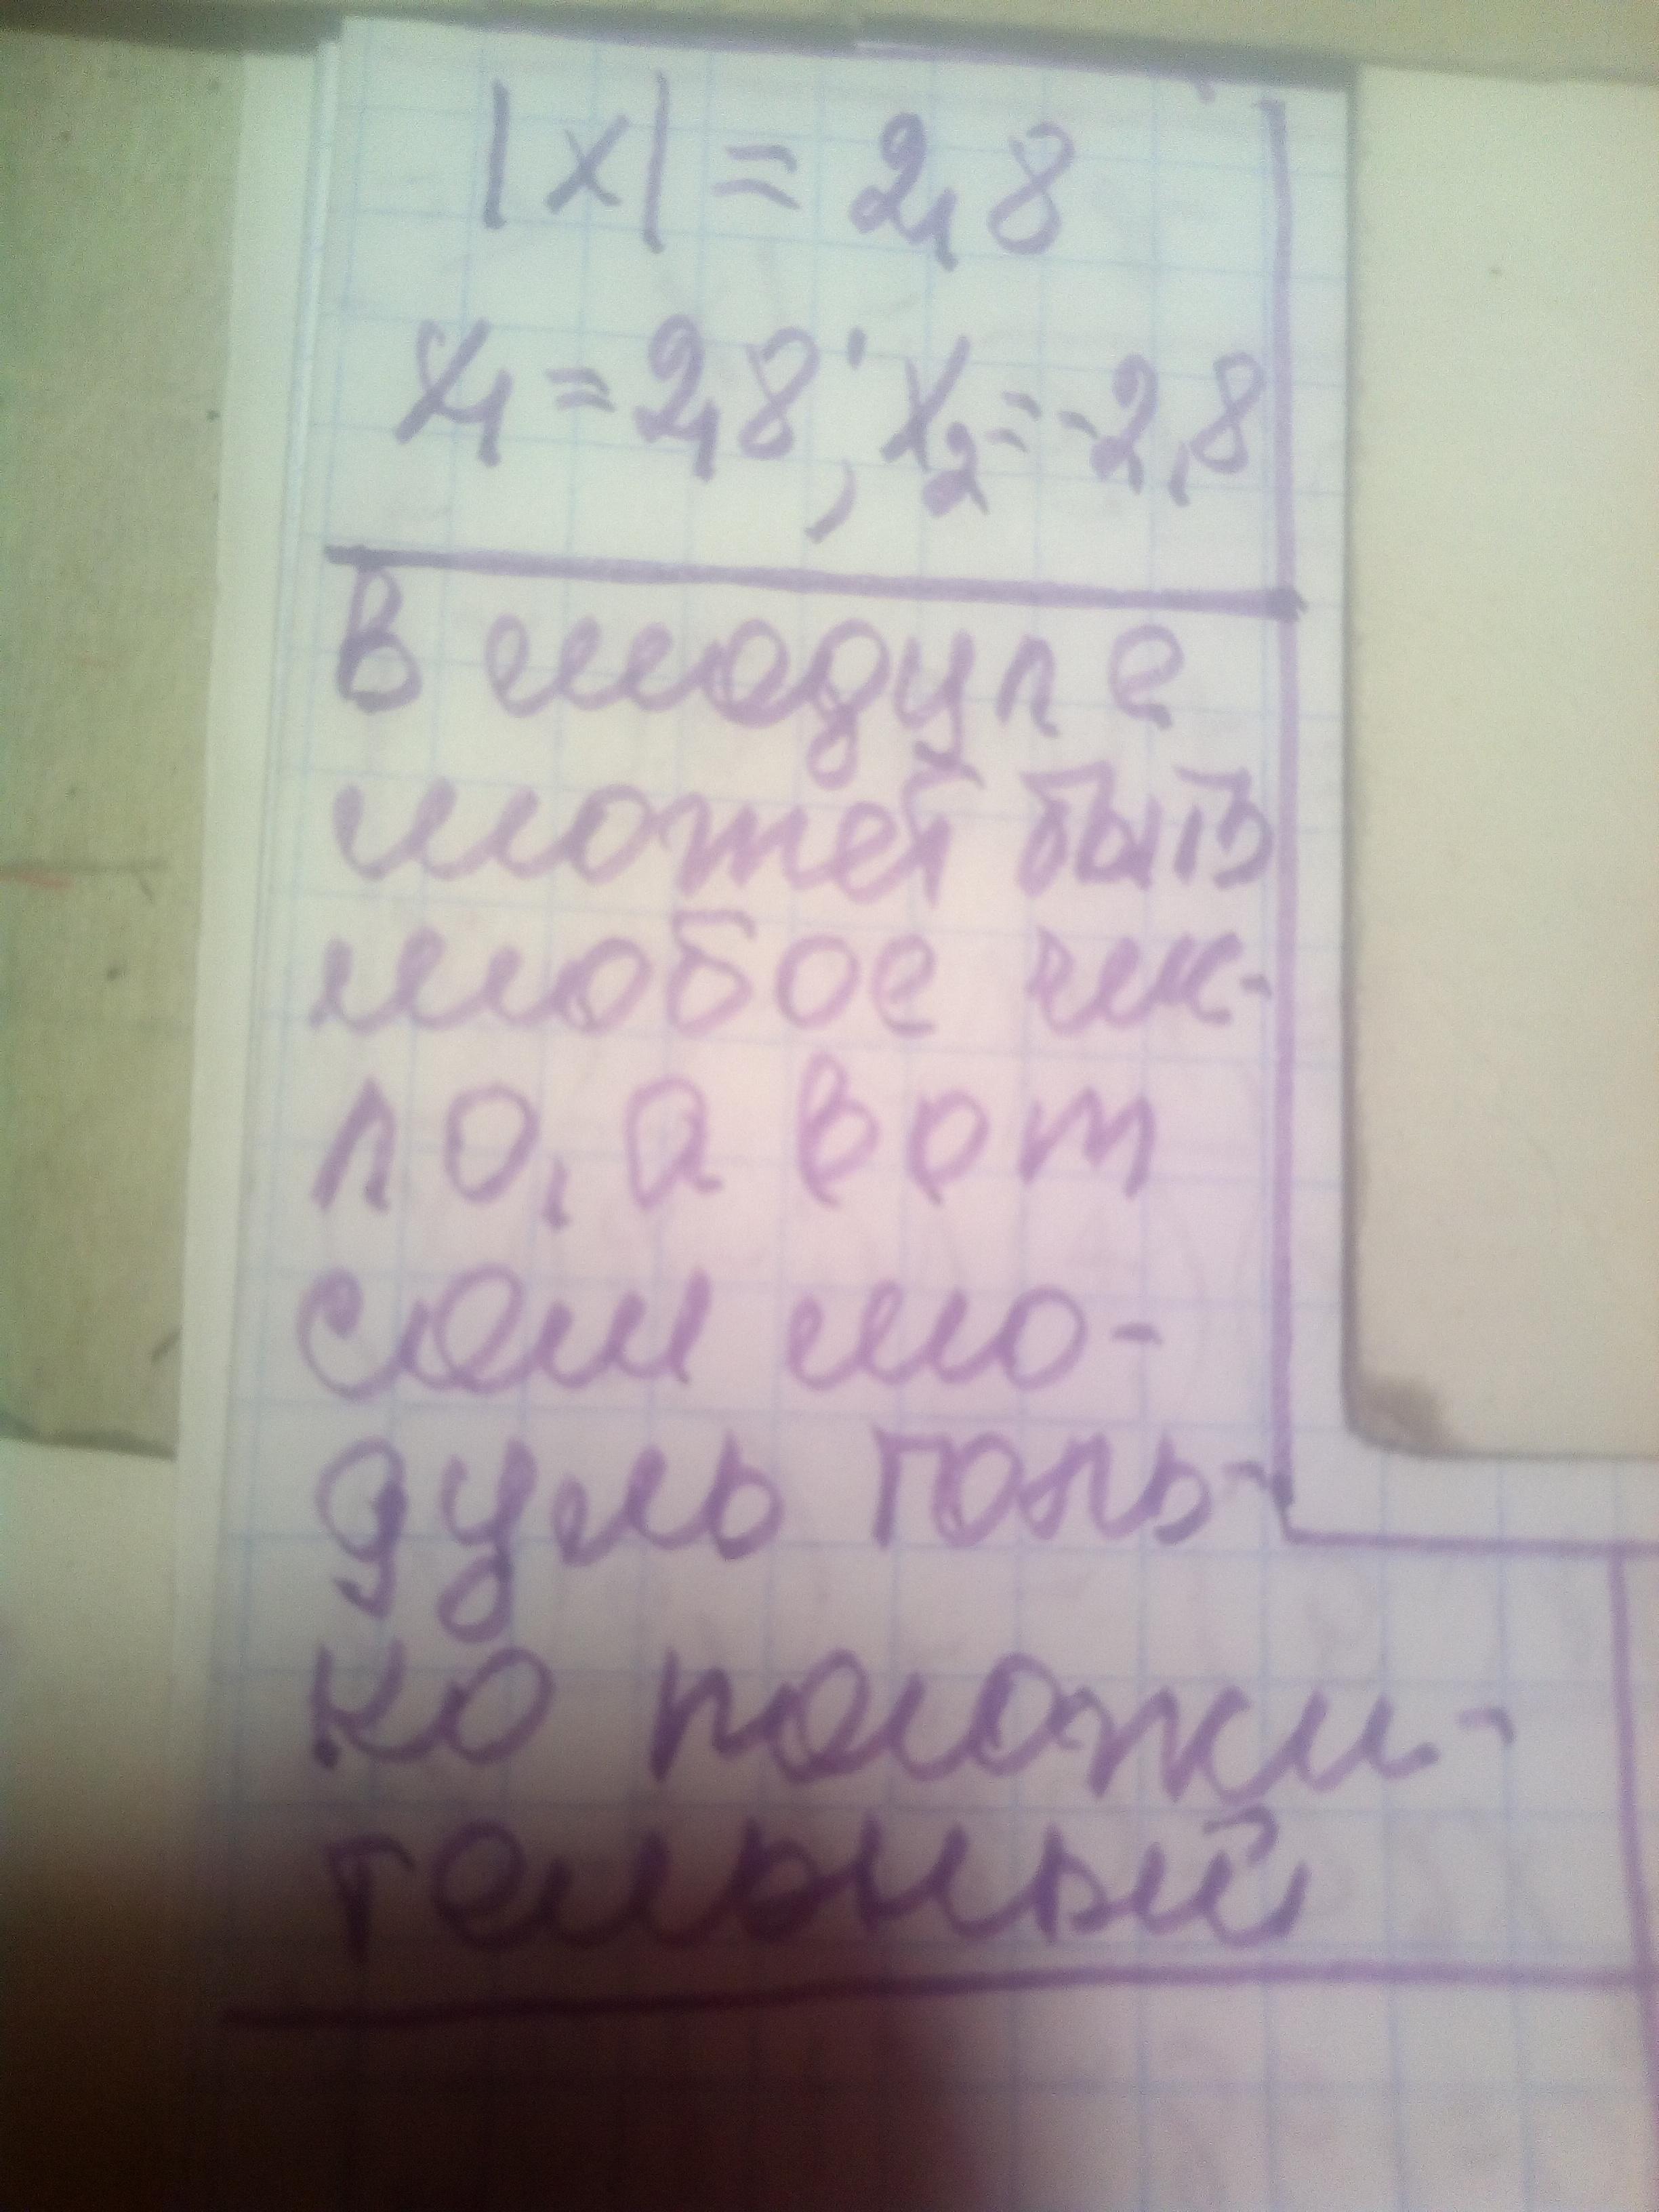 |x| = 2,8
x₁ = 2,8; x₂ = -2,8
В модуле
может быть
любое чис-
ло, а вот
сам мо-
дуль толь-
ко положи-
тельный